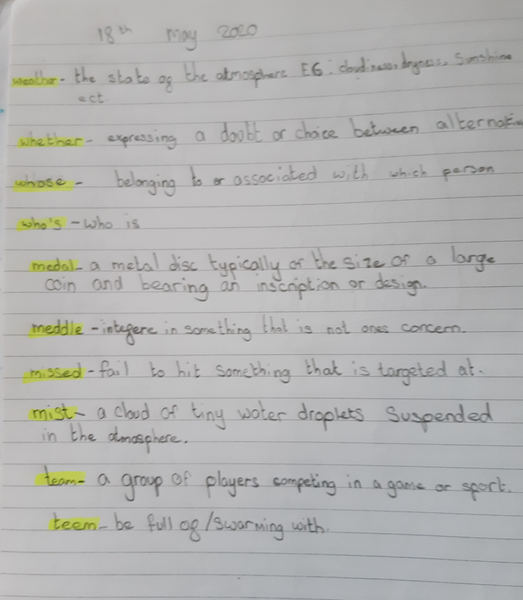 18th May 2020
weather - the state of the atmosphere EG: cloudiness, dryness, Sunshine
ect
whether - expressing a doubt or choice between
whose - belonging to or associated with which person
who's - who is
medal - a metal disc typically of the size of a large
coin and bearing an inscription or design.
meddle - integere in something that is not ones concern.
missed - fail to hit something that is targeted at.
mist - a cloud of tiny water droplets Suspended
in the atmosphere.
team - a group of players competing in a game or sport.
teem - be full og/swarming with.